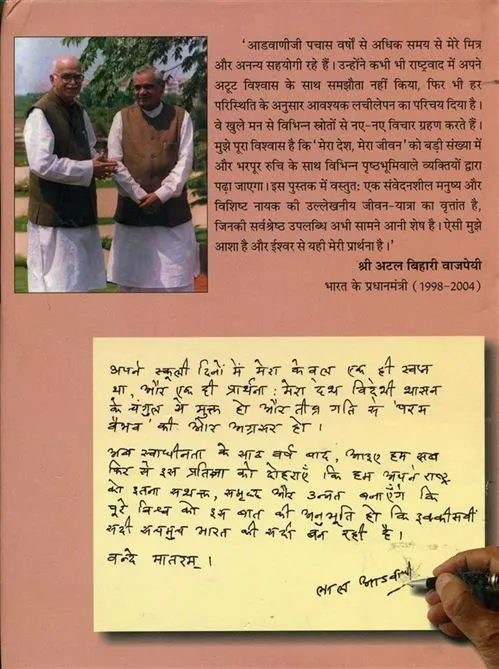 'आडवाणीजी पचास वर्षों से अधिक समय से मेरे मित्र
और अनन्य सहयोगी रहे हैं। उन्होंने कभी भी राष्ट्रवाद में अपने
अटूट विश्वास के साथ समझौता नहीं किया, फिर भी हर
परिस्थिति के अनुसार आवश्यक लचीलेपन का परिचय दिया है।
वे खुले मन से विभिन्न स्रोतों से नए-नए विचार ग्रहण करते हैं।
मुझे पूरा विश्वास है कि 'मेरा देश, मेरा जीवन' को बड़ी संख्या में
और भरपूर रुचि के साथ विभिन्न पृष्ठभूमिवाले व्यक्तियों द्वारा
पढ़ा जाएगा। इस पुस्तक में वस्तुत: एक संवेदनशील मनुष्य और
विशिष्ट नायक की उल्लेखनीय जीवन-यात्रा का वृत्तांत है,
जिनकी सर्वश्रेष्ठ उपलब्धि अभी सामने आनी शेष है। ऐसी मुझे
आशा है और ईश्वर से यही मेरी प्रार्थना है।'
श्री अटल बिहारी वाजपेयी
भारत के प्रधानमंत्री (1998-2004)
अपने स्कूली दिनों में मेरा केवल एक ही स्वप्न
था, और एक ही प्रार्थना : मेरा देश विदेशी शासन
के चंगुल से मुक्त हो और तीव्र गति से 'परम
वैभव' की ओर अग्रसर हो।
अब स्वाधीनता के साठ वर्ष बाद, आइए हम सब
फिर से इस प्रतिज्ञा को दोहराएँ कि हम अपने राष्ट्र
को इतना सशक्त, समृद्ध और उन्नत बनाएँगे कि
पूरे विश्व को इस बात की अनुभूति हो कि इक्कीसवीं
सदी सचमुच भारत की सदी बन रही है।
वन्दे मातरम्।
लाल आडवाणी